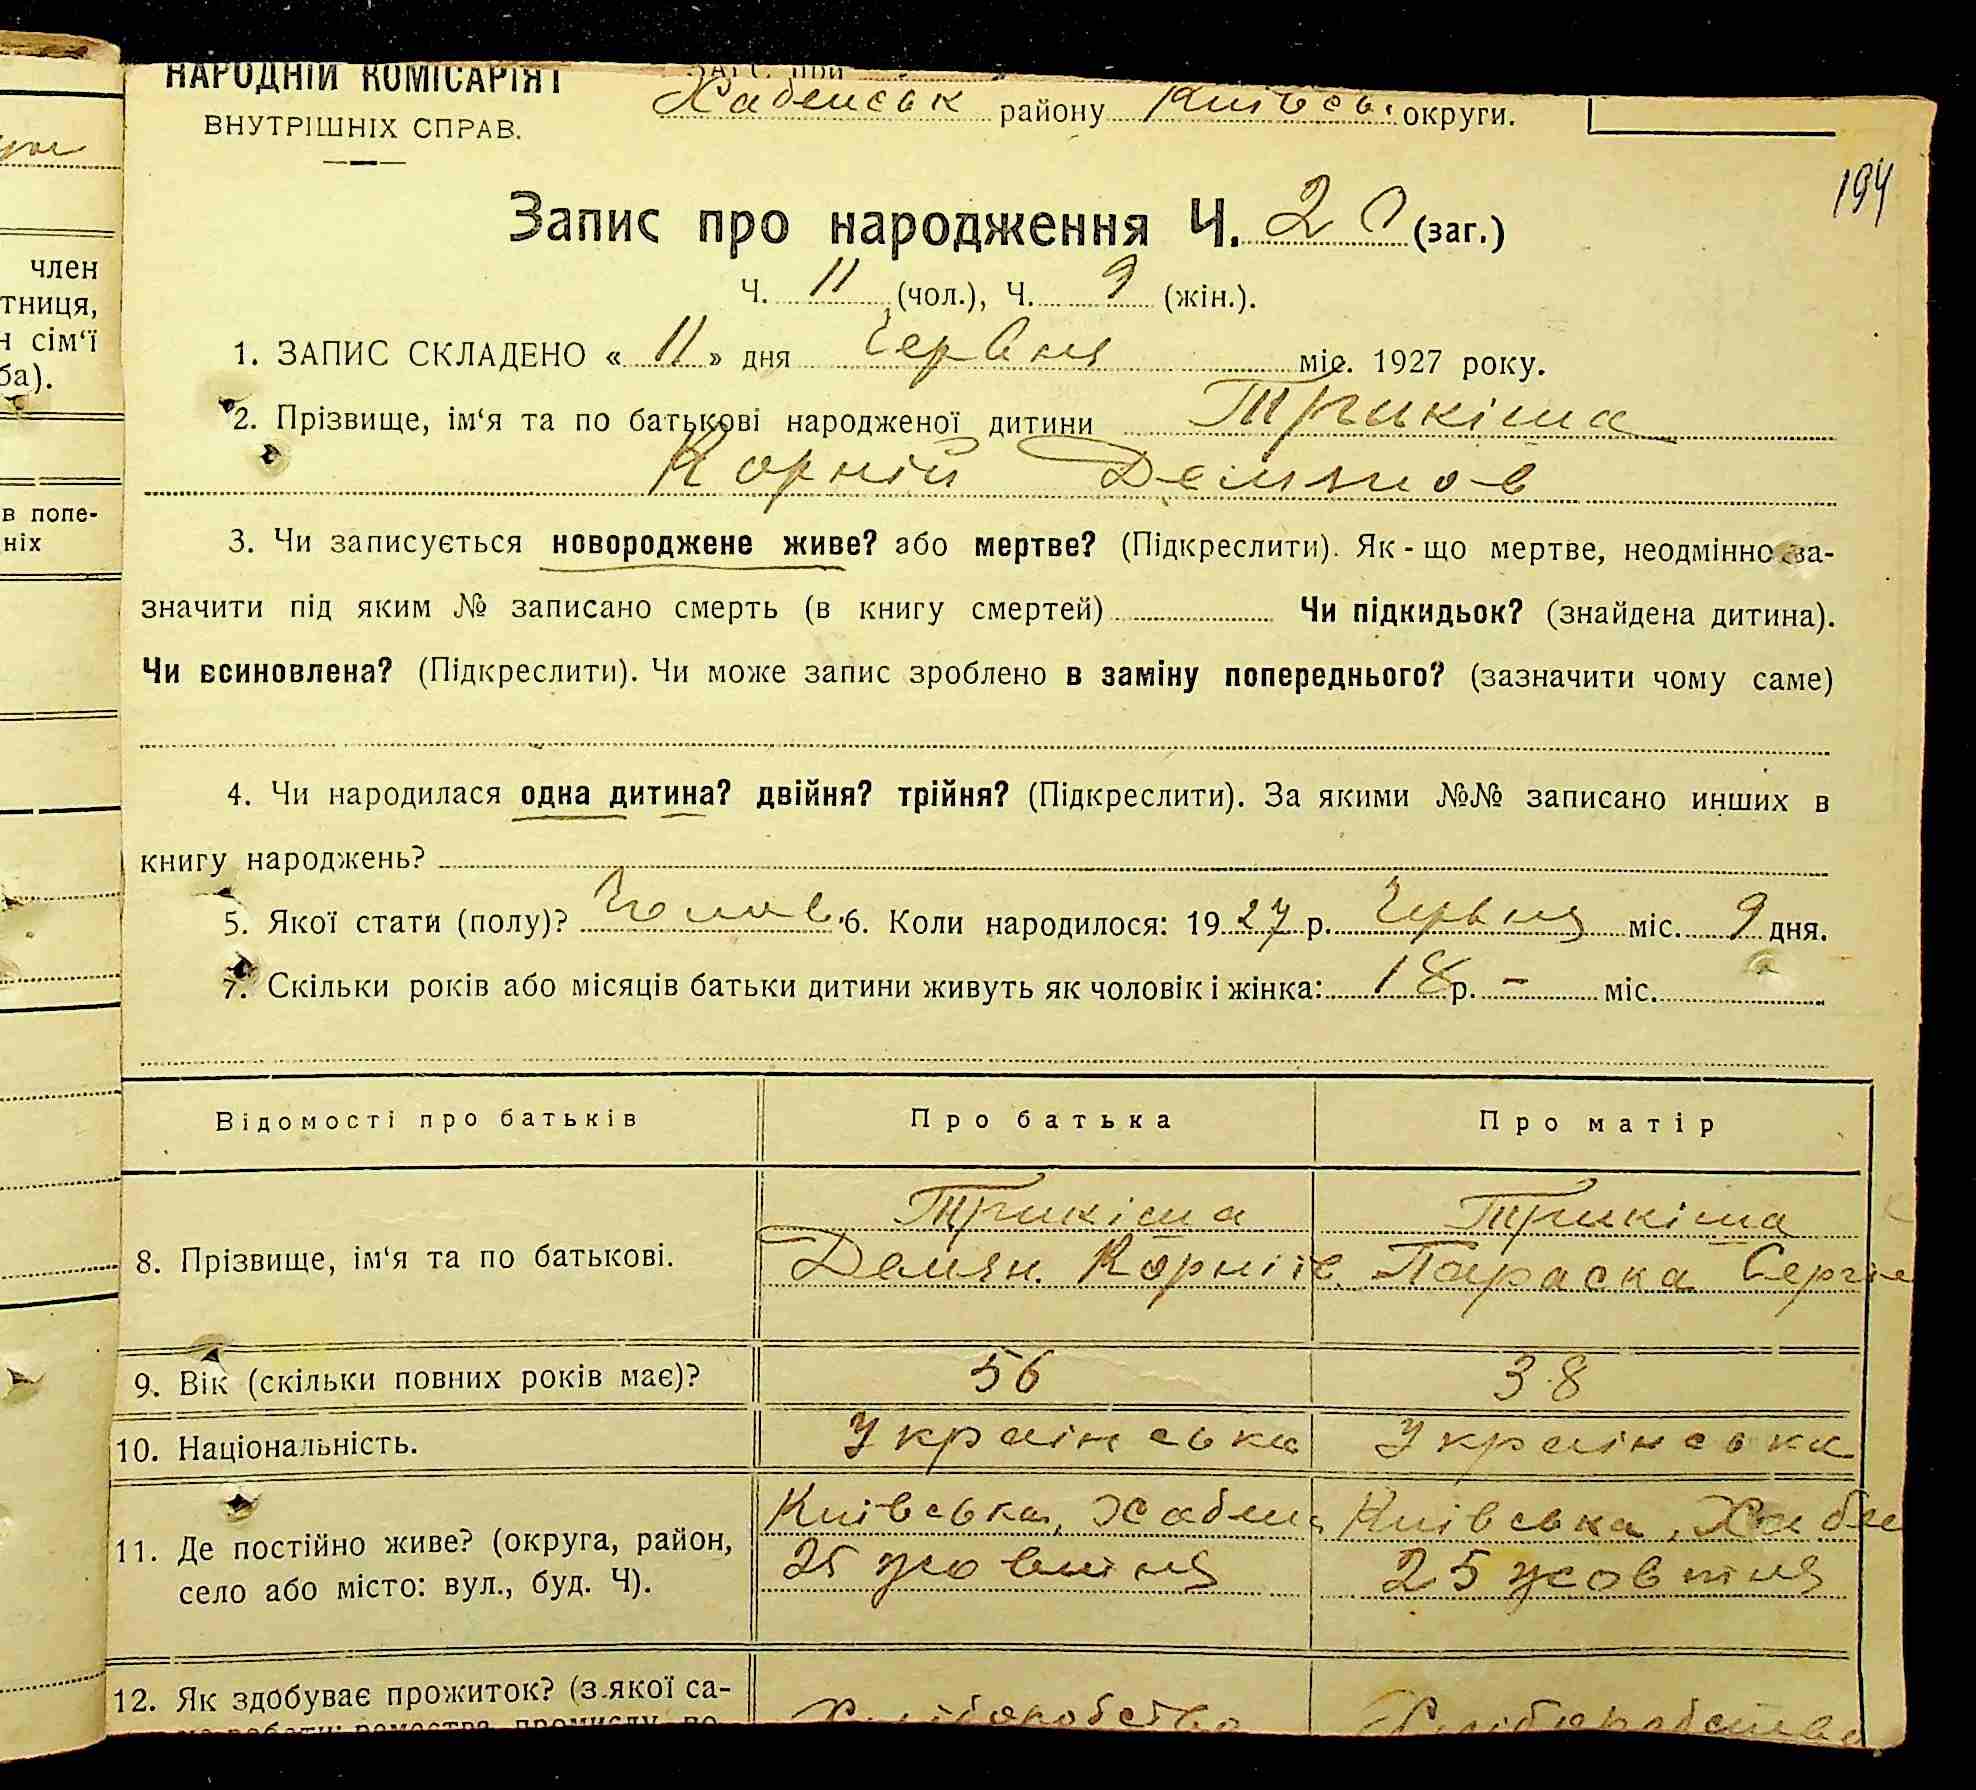 НАРОДНІЙ КОМІСАРІЯТ
ВНУТРІШНІХ СПРАВ.
ЗАГС при
Хабенськ району Київсь. округи.
194
Запис про народження Ч. 20 (заг.)
Ч. 11 (чол.), Ч. 9 (жін.).
1. ЗАПИС СКЛАДЕНО « 11 » дня Червня міс. 1927 року.
2. Прізвище, ім‘я та по батькові народженої дитини Трикіша
Корній Демянов
3. Чи записується новороджене живе? або мертве? (Підкреслити). Як-що мертве, неодмінно за-
значити під яким № записано смерть (в книгу смертей) Чи підкидьок? (знайдена дитина).
Чи всиновлена? (Підкреслити). Чи може запис зроблено в заміну попереднього? (зазначити чому саме)
4. Чи народилася одна дитина? двійня? трійня? (Підкреслити). За якими №№ записано инших в
книгу народжень?
5. Якої стати (полу)? Чолов. 6. Коли народилося: 1927 р. Червня міс. 9 дня.
7. Скільки років або місяців батьки дитини живуть як чоловік і жінка: 18 р. – міс.
Відомості про батьків Про батька Про матір
8. Прізвище, ім‘я та по батькові. Трикіша Демян. Корніїв. Трикіша Параска Сергіє
9. Вік (скільки повних років має)? 56 38
10. Національність. Українська Українська
11. Де постійно живе? (округа, район, Київська, Хабен Київська, Хабне
село або місто: вул., буд. Ч). 25 жовтня 25 жовтня
12. Як здобуває прожиток? (з якої са- Хліборобство Хліборобство
ме роботи: ремества, промислу, по-
член
тниця,
н сім‘ї
ба).
в попе-
ніх